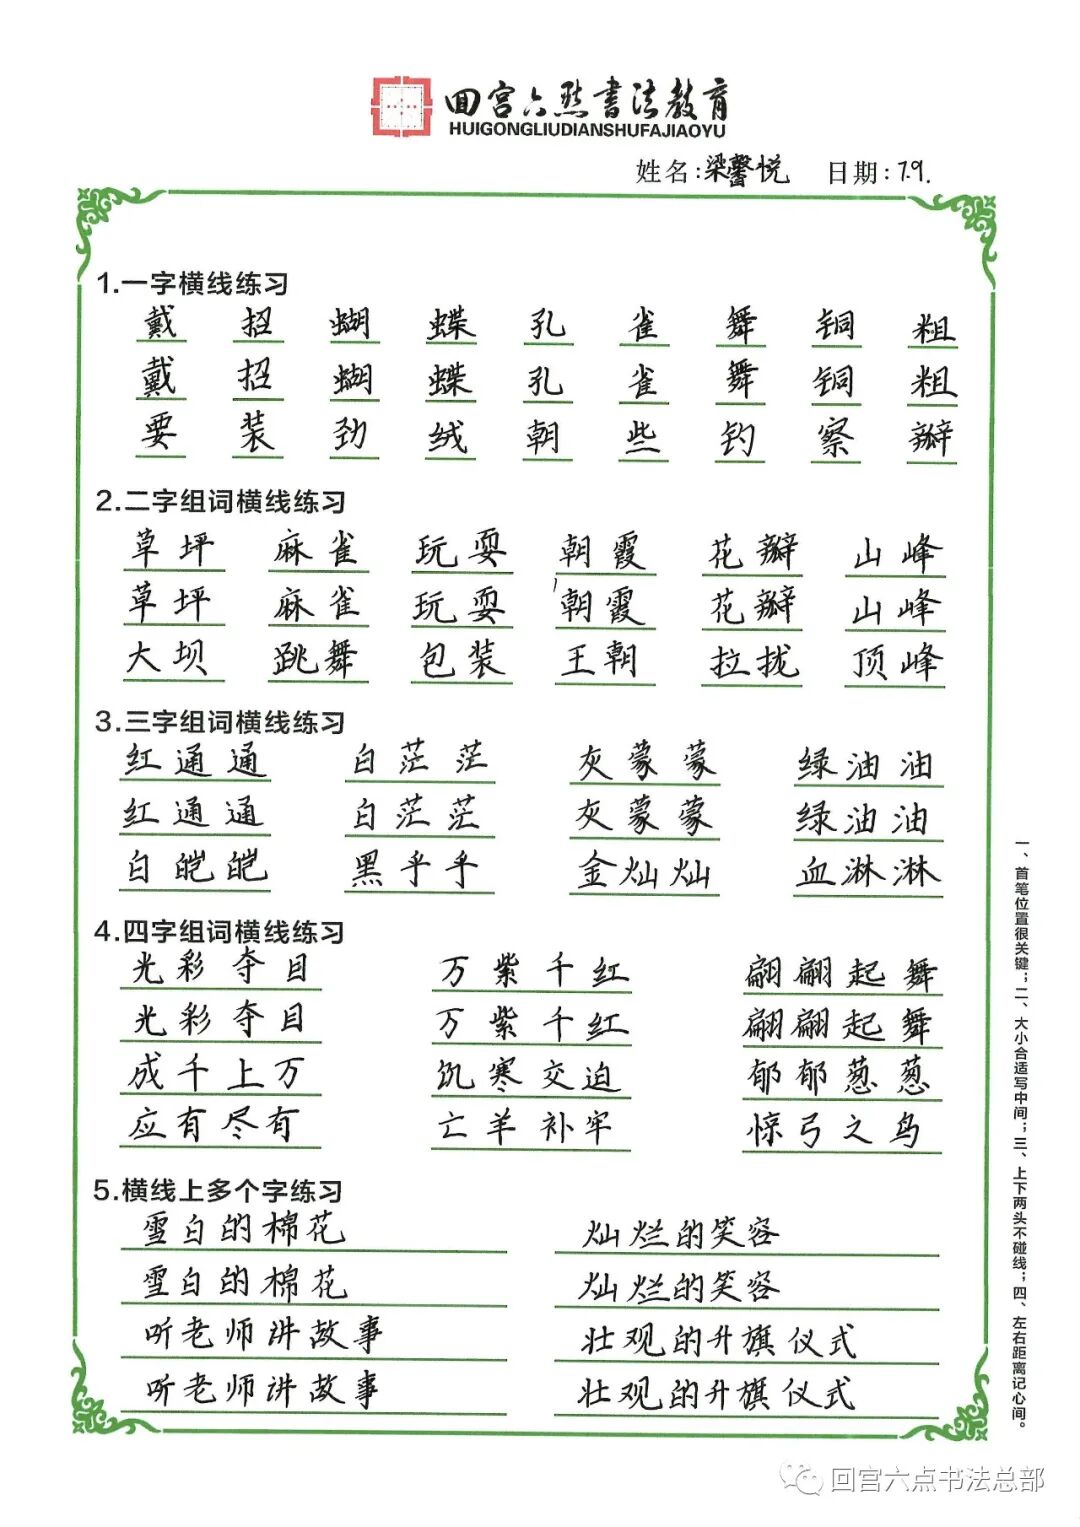 回宫六点书法教育
HUIGONGLIUDIANSHUFAJIAOYU
姓名:梁馨悦 日期:7.9.
1.一字横线练习
戴 招 蝴 蝶 孔 雀 舞 铜 粗
戴 招 蝴 蝶 孔 雀 舞 铜 粗
要 装 劲 绒 朝 些 钓 察 瓣
2.二字组词横线练习
草坪 麻雀 玩耍 朝霞 花瓣 山峰
草坪 麻雀 玩耍 朝霞 花瓣 山峰
大坝 跳舞 包装 王朝 拉拢 顶峰
3.三字组词横线练习
红通通 白茫茫 灰蒙蒙 绿油油
红通通 白茫茫 灰蒙蒙 绿油油
白皑皑 黑乎乎 金灿灿 血淋淋
4.四字组词横线练习
光彩夺目 万紫千红 翩翩起舞
光彩夺目 万紫千红 翩翩起舞
成千上万 饥寒交迫 郁郁葱葱
应有尽有 亡羊补牢 惊弓之鸟
5.横线上多个字练习
雪白的棉花 灿烂的笑容
雪白的棉花 灿烂的笑容
听老师讲故事 壮观的升旗仪式
听老师讲故事 壮观的升旗仪式
一、首笔位置很关键；二、大小合适写中间；三、上下两头不碰线；四、左右距离记心间。
回宫六点书法总部